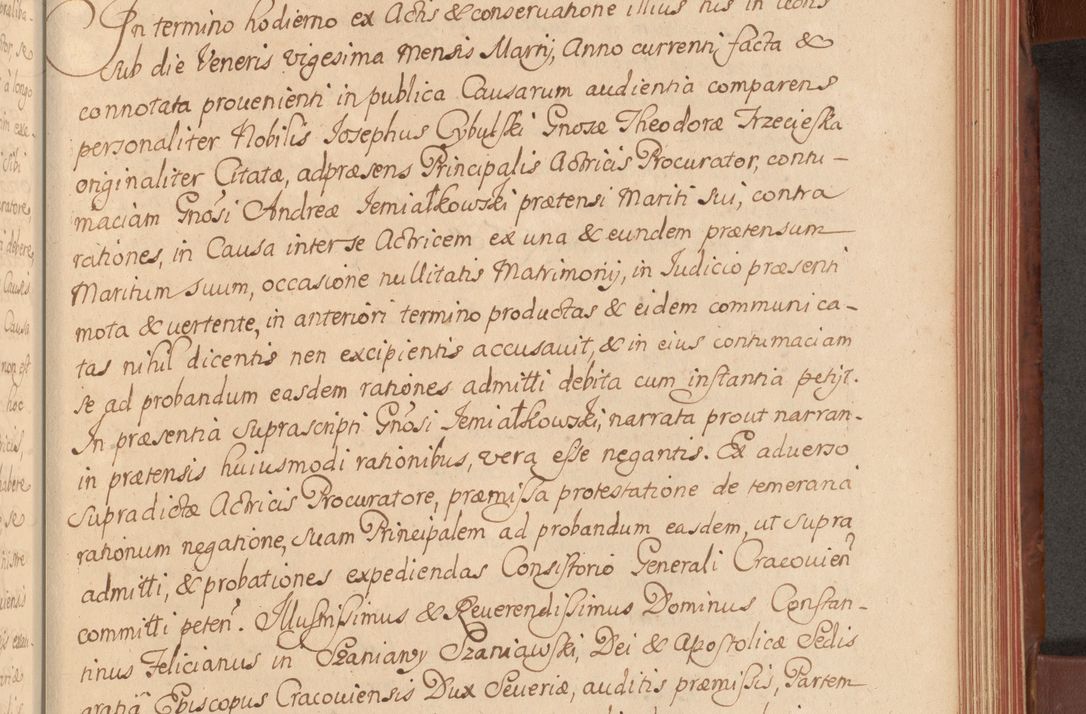 In termino hodierno ex Actis & conservatione illius his in
sub die Veneris vigesima Mensis Martij, Anno currenti facta &
connotata provenienti in publica Causarum audientia comparens
personaliter Nobilis Josephus Cybulski Gnosæ Theodoræ Trzecieska
originaliter Citatæ, ad præsens Principalis Actricis Procurator, contu-
maciam Gnosi Andreæ Jemiałkowski prætensi Mariti sui, contra
rationes, in Causa inter se Actricem ex una & eundem prætensum
Maritum suum, occasione nullitatis Matrimonij, in Judicio præsenti
mota & vertente, in anteriori termino productas & eidem communica-
tas nihil dicentis nen excipientis accusavit, & in eius contumaciam
se ad probandum easdem rationes admitti debita cum instantia petijt.
In præsentia suprascripti Gnosi Jemiałkowski, narrata prout narran-
in prætensis huiusmodi rationibus, vera esse negantis. Ex adverso
supradictæ Actricis Procuratore, præmissa protestatione de temeraria
rationum negatione, suam Principalem ad probandum easdem, ut supra
admitti, & probationes expediendas Consistorio Generali Cracovien
committi peten. Illustrissimus & Reverendissimus Dominus Constan-
tinus Felicianus in Szaniawy Szaniawski, Dei & Apostolicæ Sedis
gratia Episcopus Cracoviensis Dux Severiæ, auditis præmissis, Partem